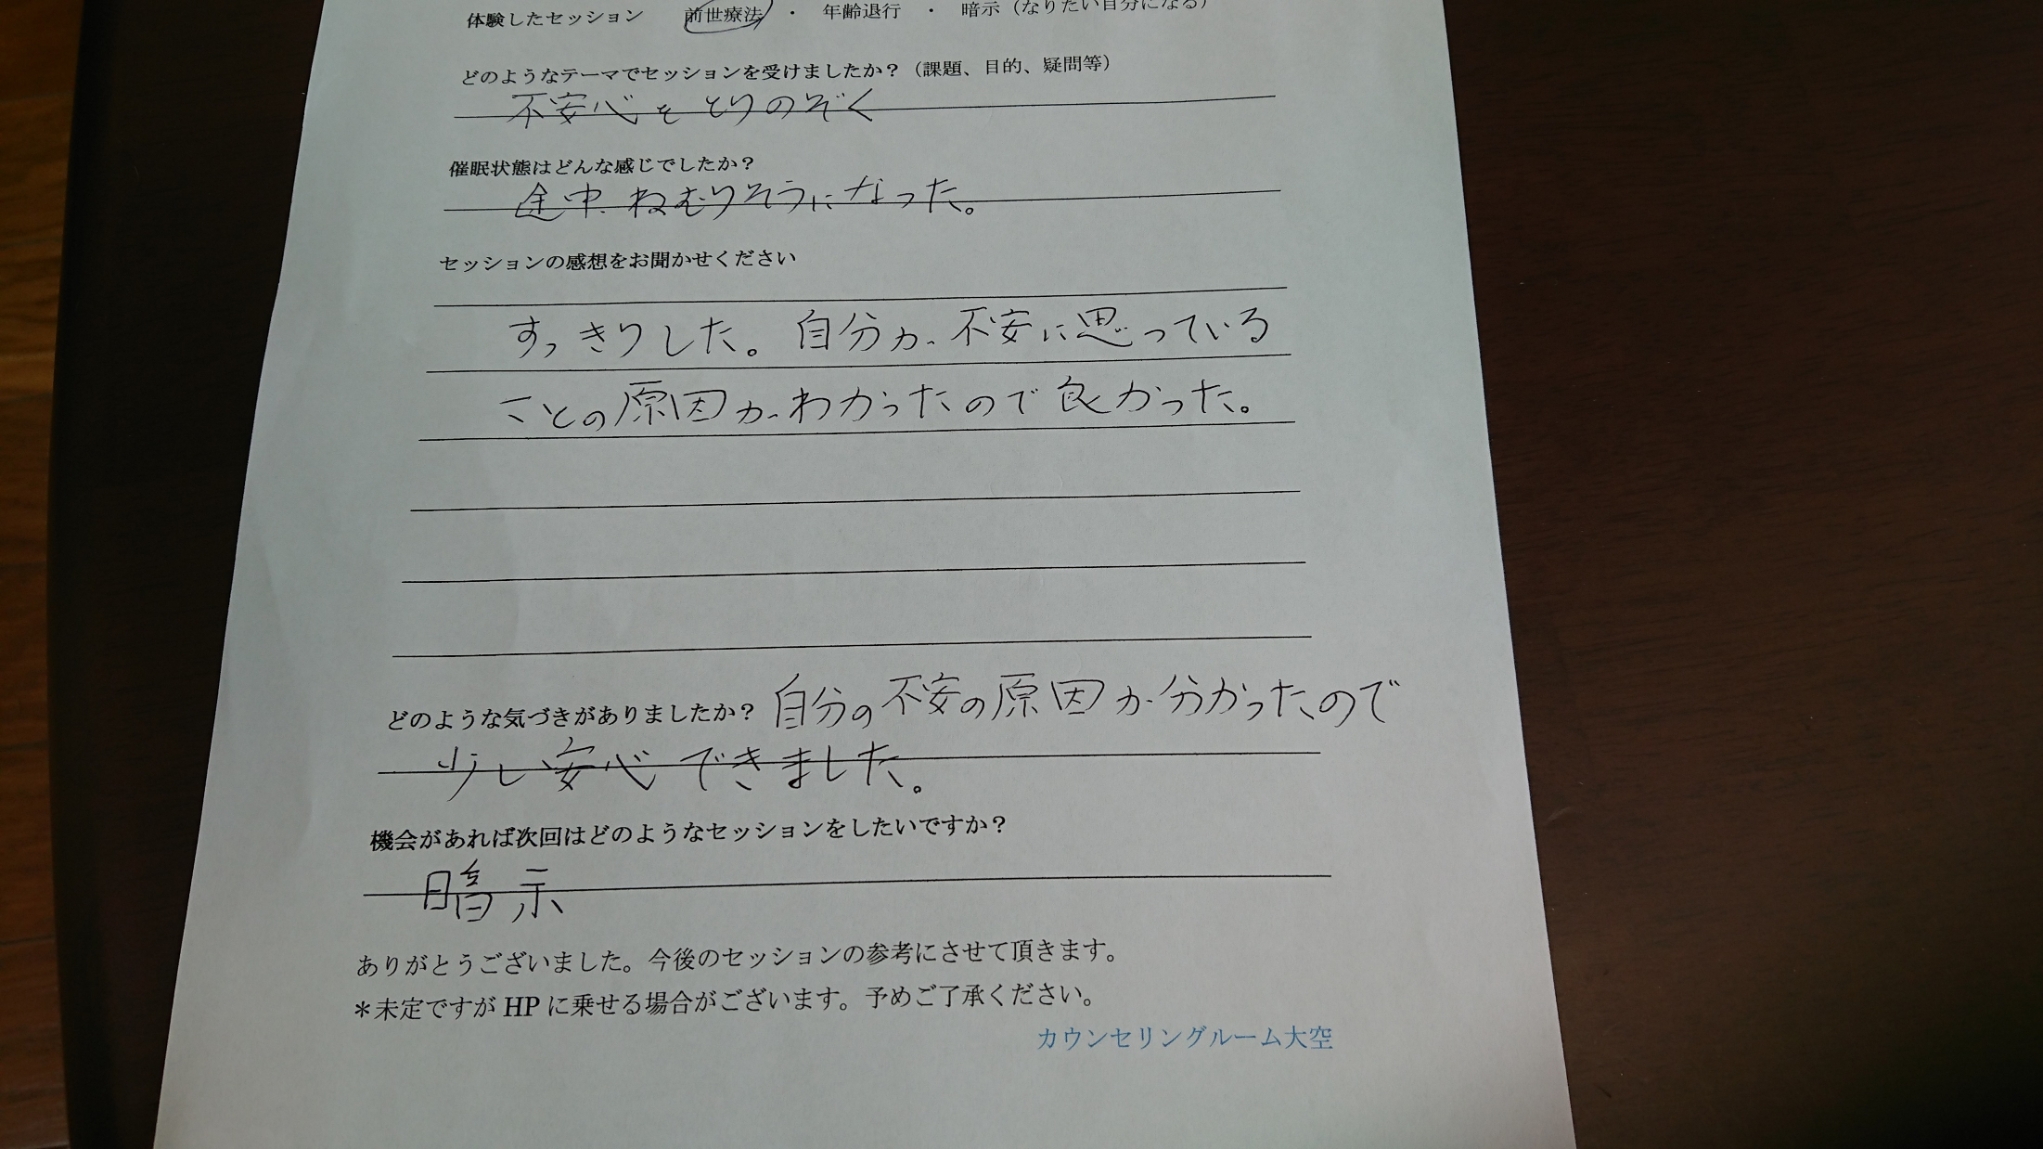 体験したセッション 前世療法 ・ 年齢退行 ・ 暗示（なりたい自分になる）
どのようなテーマでセッションを受けましたか？（課題、目的、疑問等）
不安心をとりのぞく
催眠状態はどんな感じでしたか？
途中、ねむりそうになった。
セッションの感想をお聞かせください
すっきりした。自分が不安に思っている
ことの原因がわかったので良かった。
どのような気づきがありましたか？ 自分の不安の原因が分かったので
少し安心できました。
機会があれば次回はどのようなセッションをしたいですか？
暗示
ありがとうございました。今後のセッションの参考にさせて頂きます。
＊未定ですが HP に乗せる場合がございます。予めご了承ください。
カウンセリングルーム大空